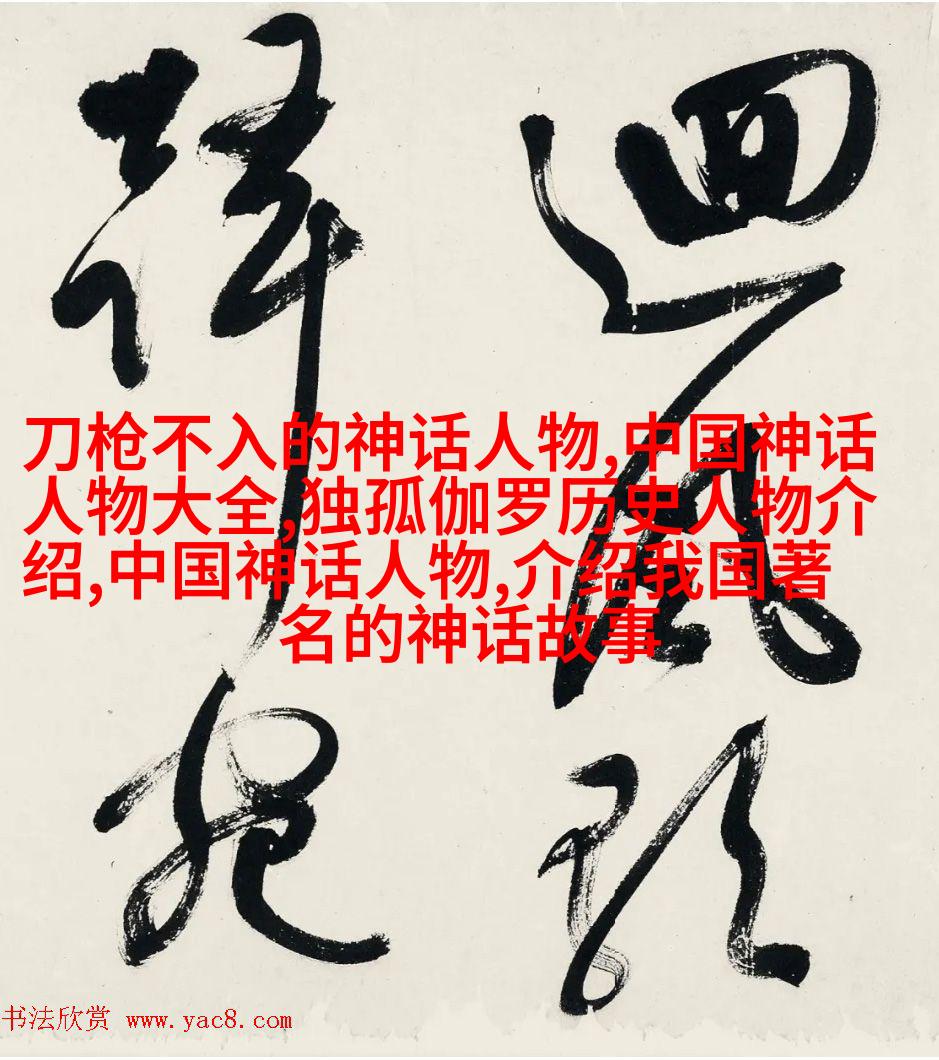 迴風
刀枪不入的神话人物,中国神话
人物大全,独孤伽罗历史人物介
绍,中国神话人物,介绍我国著
名的神话故事
书法欣赏 www.yac8.com